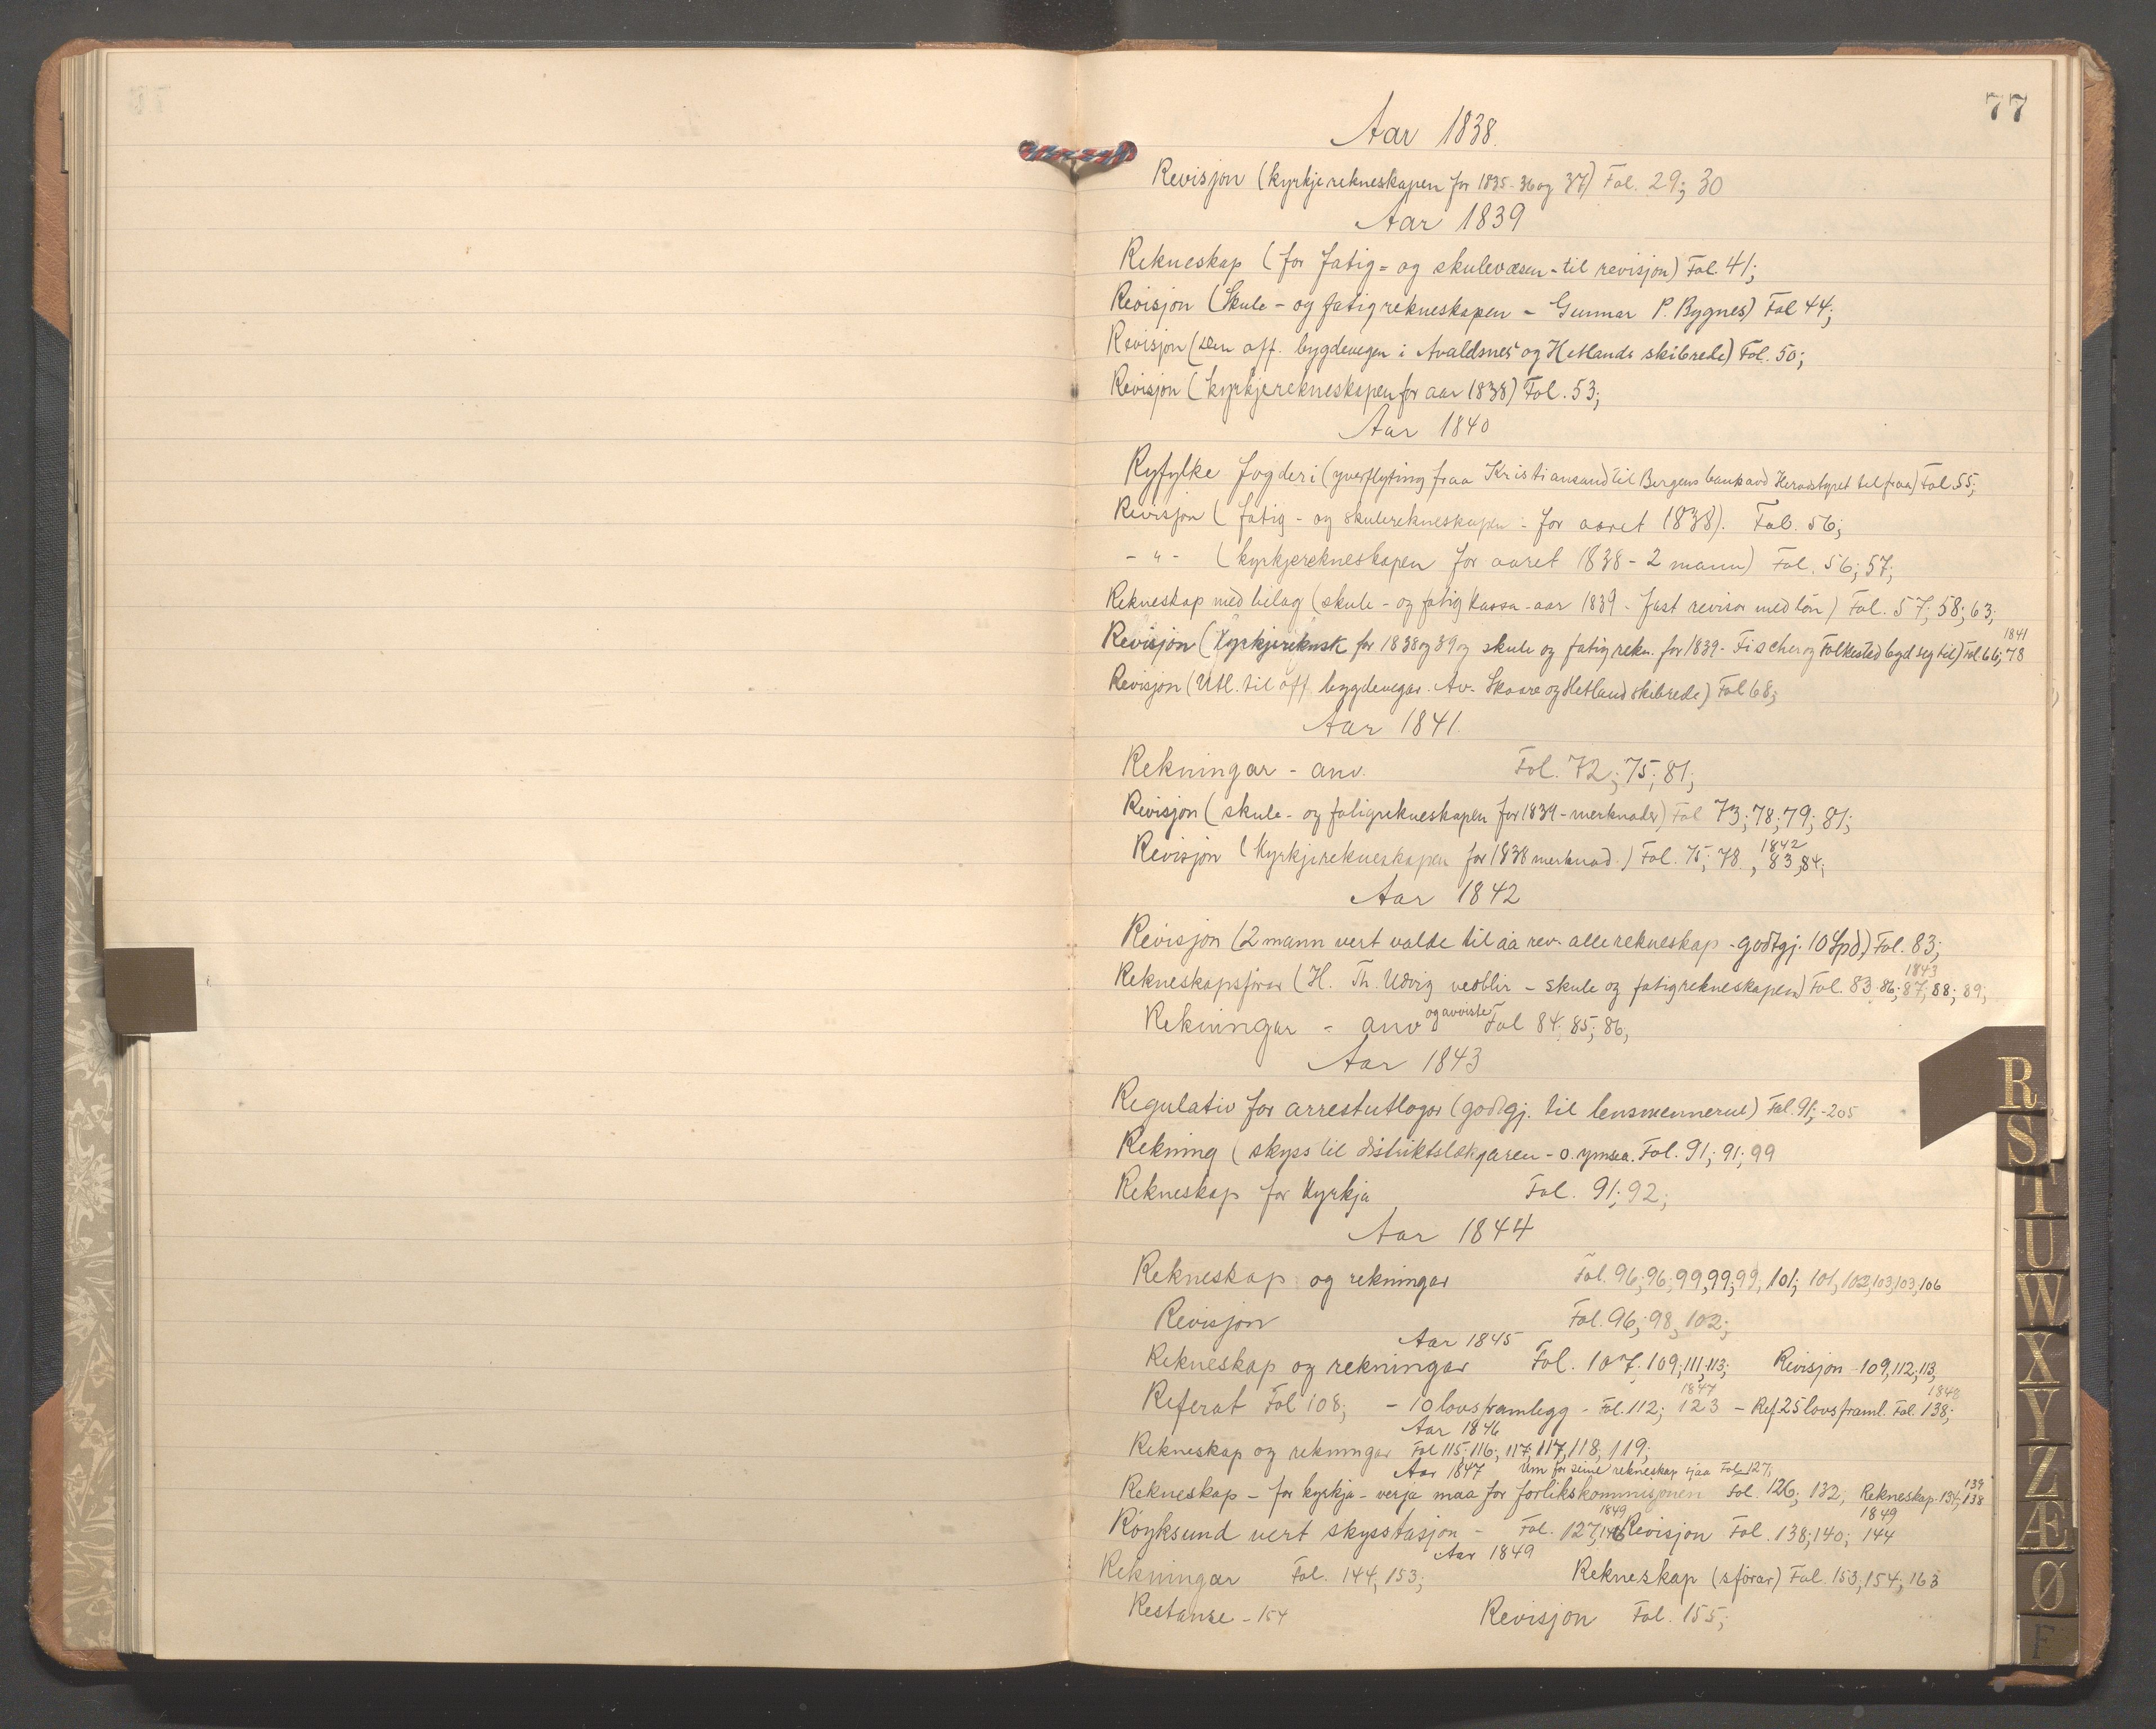 77
Aar 1838.
Revisjon (kyrkjerekneskapen for 1835-36 og 37) Fol. 29; 30
Aar 1839
Rekneskap (for fatig= og skulevæsen - til revisjon) Fol. 41;
Revisjon (Skule - og fatigrekneskapen - Gunnar P. Bygnes) Fol 44;
Revisjon ( off. bygdevegen i Avaldsnes og Hetlands skibrede) Fol. 50;
Revisjon (kyrkjerekneskapen for aar 1838) Fol. 53;
Aar 1840
Ryfylke fogderi (yverflyting fraa Kristiansand til Bergens bankavd Heradstyret til fraa) Fol 55;
Revisjon (fatig - og skulerekneskapen - for aaret 1838). Fol. 56;
- " - (kyrkjerekneskapen for aaret 1838 - 2 mann) Fol. 56; 57;
Rekneskap med bilag (skule - og fatigkassa - aar 1839 - fast revisor med lön) Fol. 57; 58; 63;
1841
Revisjon (Kyrkjereknsk for 1838 og 39 og skule og fatigrekn. for 1839 - Fischer og Folkested byd seg til) Fol 66; 78
Revisjon (Utl. til off bygdevegar. Av. Skaare og Hetland skibrede) Fol 68;
Aar 1841.
Rekningar - anv. Fol. 72; 75; 81;
Revisjon (skule - og fatigrekneskapen for 1839 - merknader) Fol 73; 78; 79; 81;
1842
Revisjon (Kyrkjerekneskapen for 1838 merknad.) Fol. 75; 78, 83, 84;
Aar 1842
Revisjon (2 mann vert valde til aa rev. alle rekneskap - godtgj. 10 Spd) Fol. 83;
1843
Rekneskapsförar (H. Th. Udvig vedblir - skule og fatigrekneskapen) Fol. 83. 86; 87; 88; 89;
Rekningar - anv og avviste Fol 84; 85; 86,
Aar 1843
Regulativ for arrestutlogor (godtgj. til lensmennerne) Fol. 91; -205
Rekning (skyss til distriktslækjaren - o. ymsea. Fol. 91; 91; 99
Rekneskap for Kyrkja Fol. 91; 92;
Aar 1844
Rekneskap og rekningar Fol. 96; 96; 99, 99; 99, 101; 101, 102, 103, 103, 106
Revisjon Fol. 96; 98, 102;
Aar 1845
Rekneskap og rekningar Fol. 107. 109; 111; 113; Revisjon - 109, 112; 113,
1847 1848
Referat Fol 108; - 10 lovsframlegg - Fol. 112; 123 - Ref. 25 lovsframl. Fol. 138;
Aar 1846
Rekneskap og rekningar Fol 115; 116; 117; 117, 118; 119;
Aar 1847 Um for seine rekneskap sjaa Fol. 127;
139
Rekneskap - for kyrkja - verja maa for forlikskommisjonen Fol. 126; 132, Rekneskap. 134; 138
1849 1849
Röyksund vert skysstasjon - Fol. 127, 146 Revisjon Fol. 138; 140; 144
Aar 1849
Rekningar Fol. 144, 153; Rekneskap (sförar) Fol. 153, 154; 163
Restanse - 154 Revisjon Fol. 155;
R
S
T
U
W
X
Y
Z
Æ
Ø
F